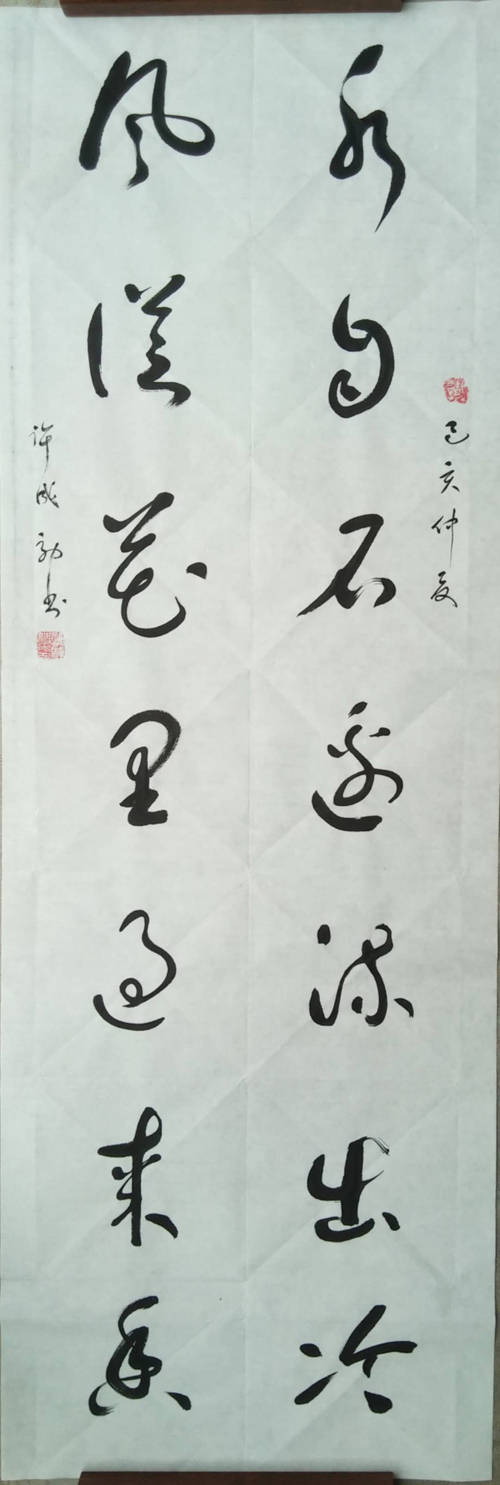 己亥仲夏
水自石边流出冷
风从花里过来香
许成书